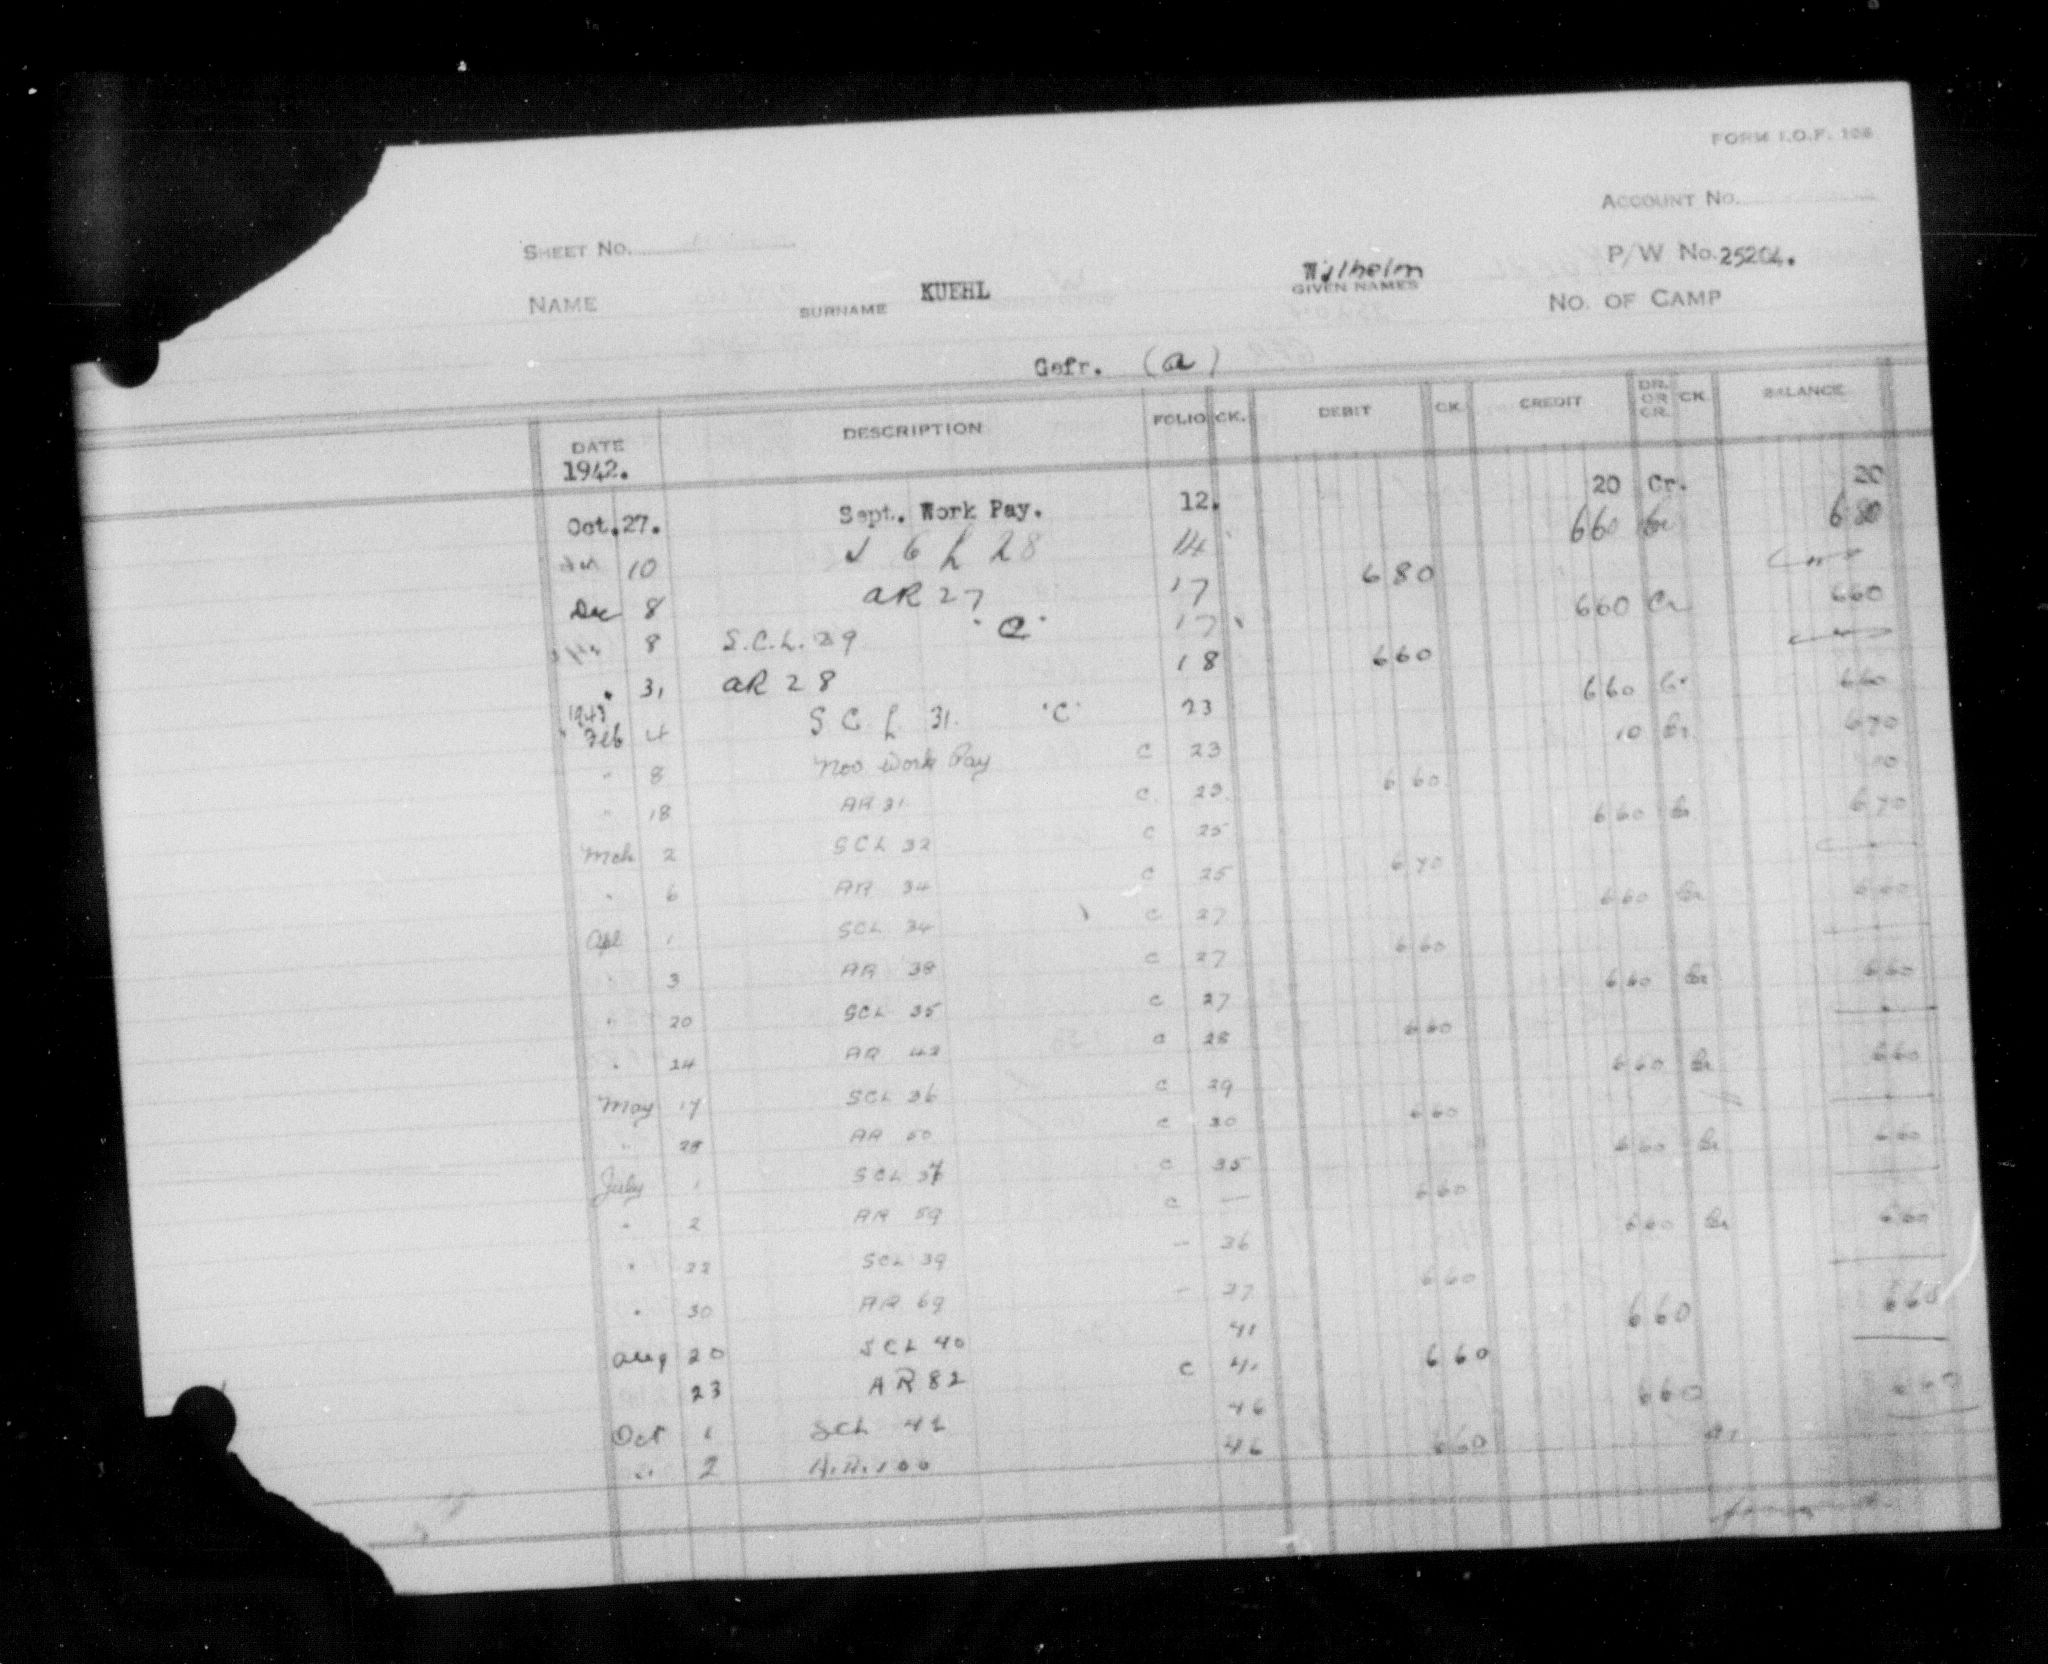 FORM I.O.F. 108
ACCOUNT No.
SHEET No.
P/W No. 25204.
NAME SURNAME KUEHL GIVEN NAMES Wilhelm
No. OF CAMP
Gefr. (a)
DATE DESCRIPTION FOLIO CK. DEBIT CK. CREDIT DR. OR CR. CK. BALANCE
1942.
Oct. 27. Sept. Work Pay. 12. 20 Cr. 20
10 14 660 Cr 680
Dec 8 AR 27 17 680
8 S.C.L. 29 "C" 17 660 Cr 660
31 AR 28 18 660
1943
Feb 4 S C L 31. "C" 23 660 Cr 660
" 8 Nov Work Pay C 23 10 Cr. 670
" 18 AR 31 C 23. 660 10
Mch 2 SCL 32 C 25 660 Cr 670
" 6 AR 34 C 25 670
Apl 1 SCL 34 C 27 660 Cr 660
" 3 AR 38 C 27 660
" 20 SCL 35 C 27 660 Cr 660
" 24 AR 42 C 28 660
May 17 SCL 36 C 29 660 Cr 660
" 28 AR 50 C 30 660
July 1 SCL 37 C 35 660 Cr 660
" 2 AR 59 C — 660
" 22 SCL 39 — 36 660 Cr 660
" 30 AR 69 — 37 660
Aug 20 SCL 40 41 660 660
23 AR 82 C 41 660
Oct 1 SCL 42 46 660 660
" 2 A.R. 100 46 660